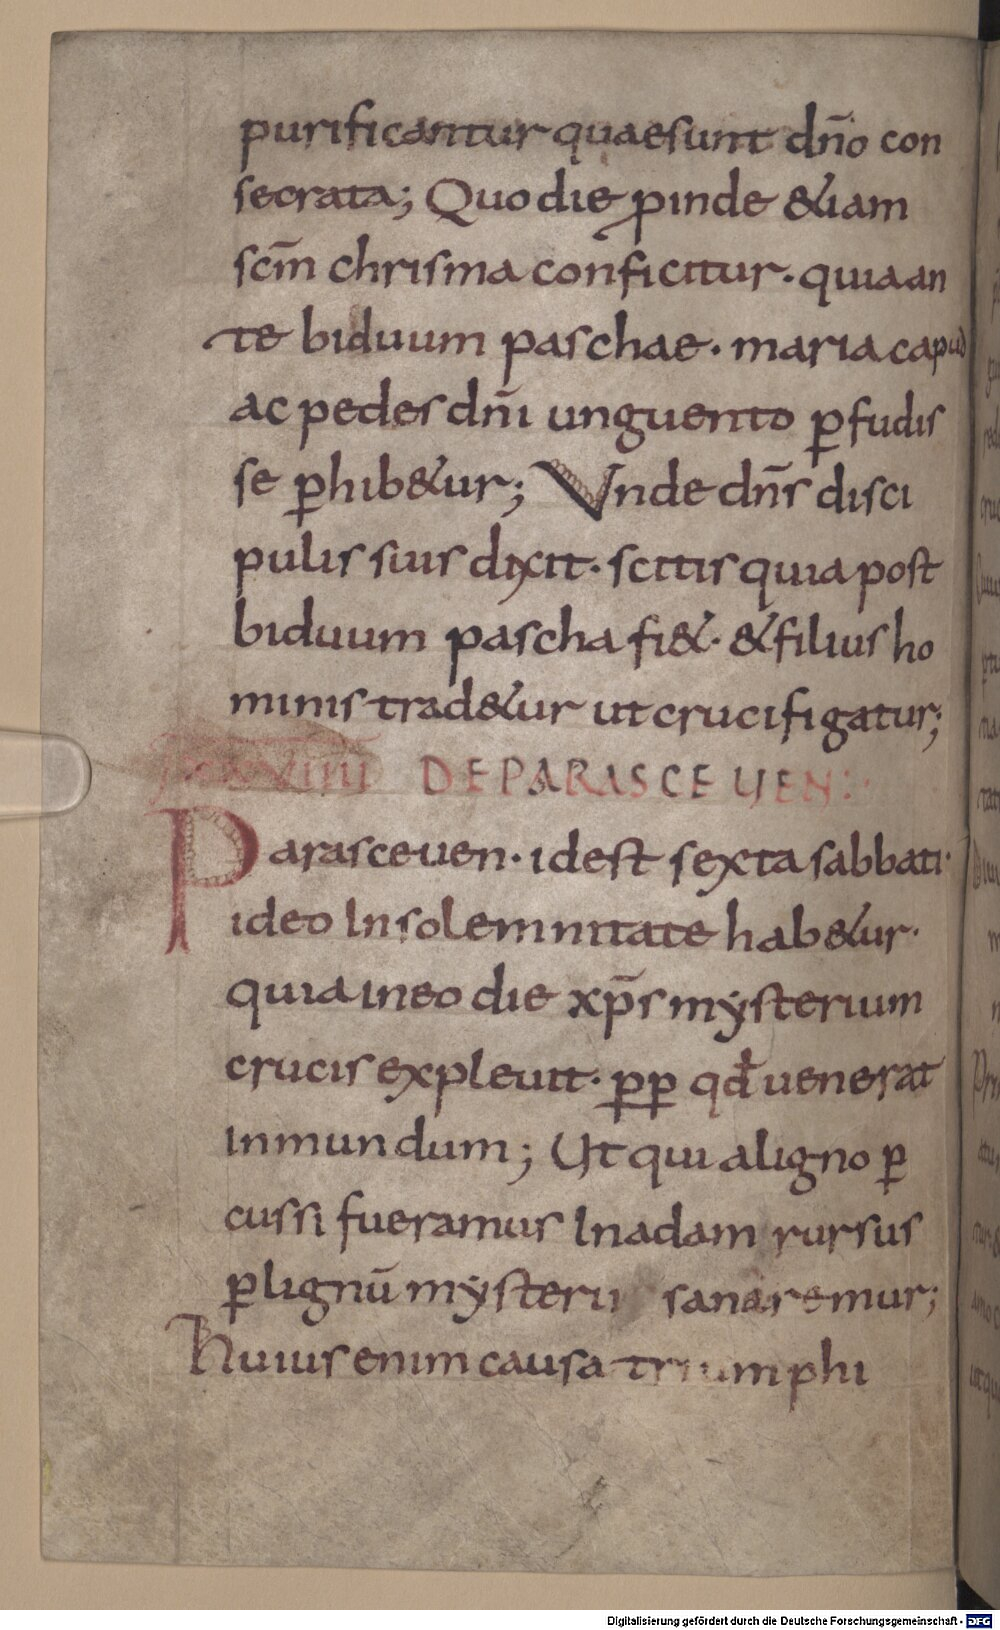 purificantur quae sunt dn̄o con
secrata; Quo die ꝓinde &iam
scm̄ chrisma conficitur· quia an
te biduum paschae· maria capud
ac pedes dn̄i unguento ꝑfudis
se ꝑhib&ur; Unde dn̄s disci
pulis suis dixit· scitis quia post
biduum pascha fi&· & filius ho
minis trad&ur ut crucifigatur;
XXVIIII DE PARASCEUEN:·
Parasceuen· idest sexta sabbati·
ideo In solemnitate hab&ur·
quia in eo die xp̄s mẏsterium
crucis expleuit· ꝑꝑ qđ uenerat
in mundum; Ut qui a ligno ꝑ
cussi fueramus In adam rursus
ꝑ lignū mẏsterii sanaremur;
Huius enim causa triumphi
Digitalisierung gefördert durch die Deutsche Forschungsgemeinschaft - DFG